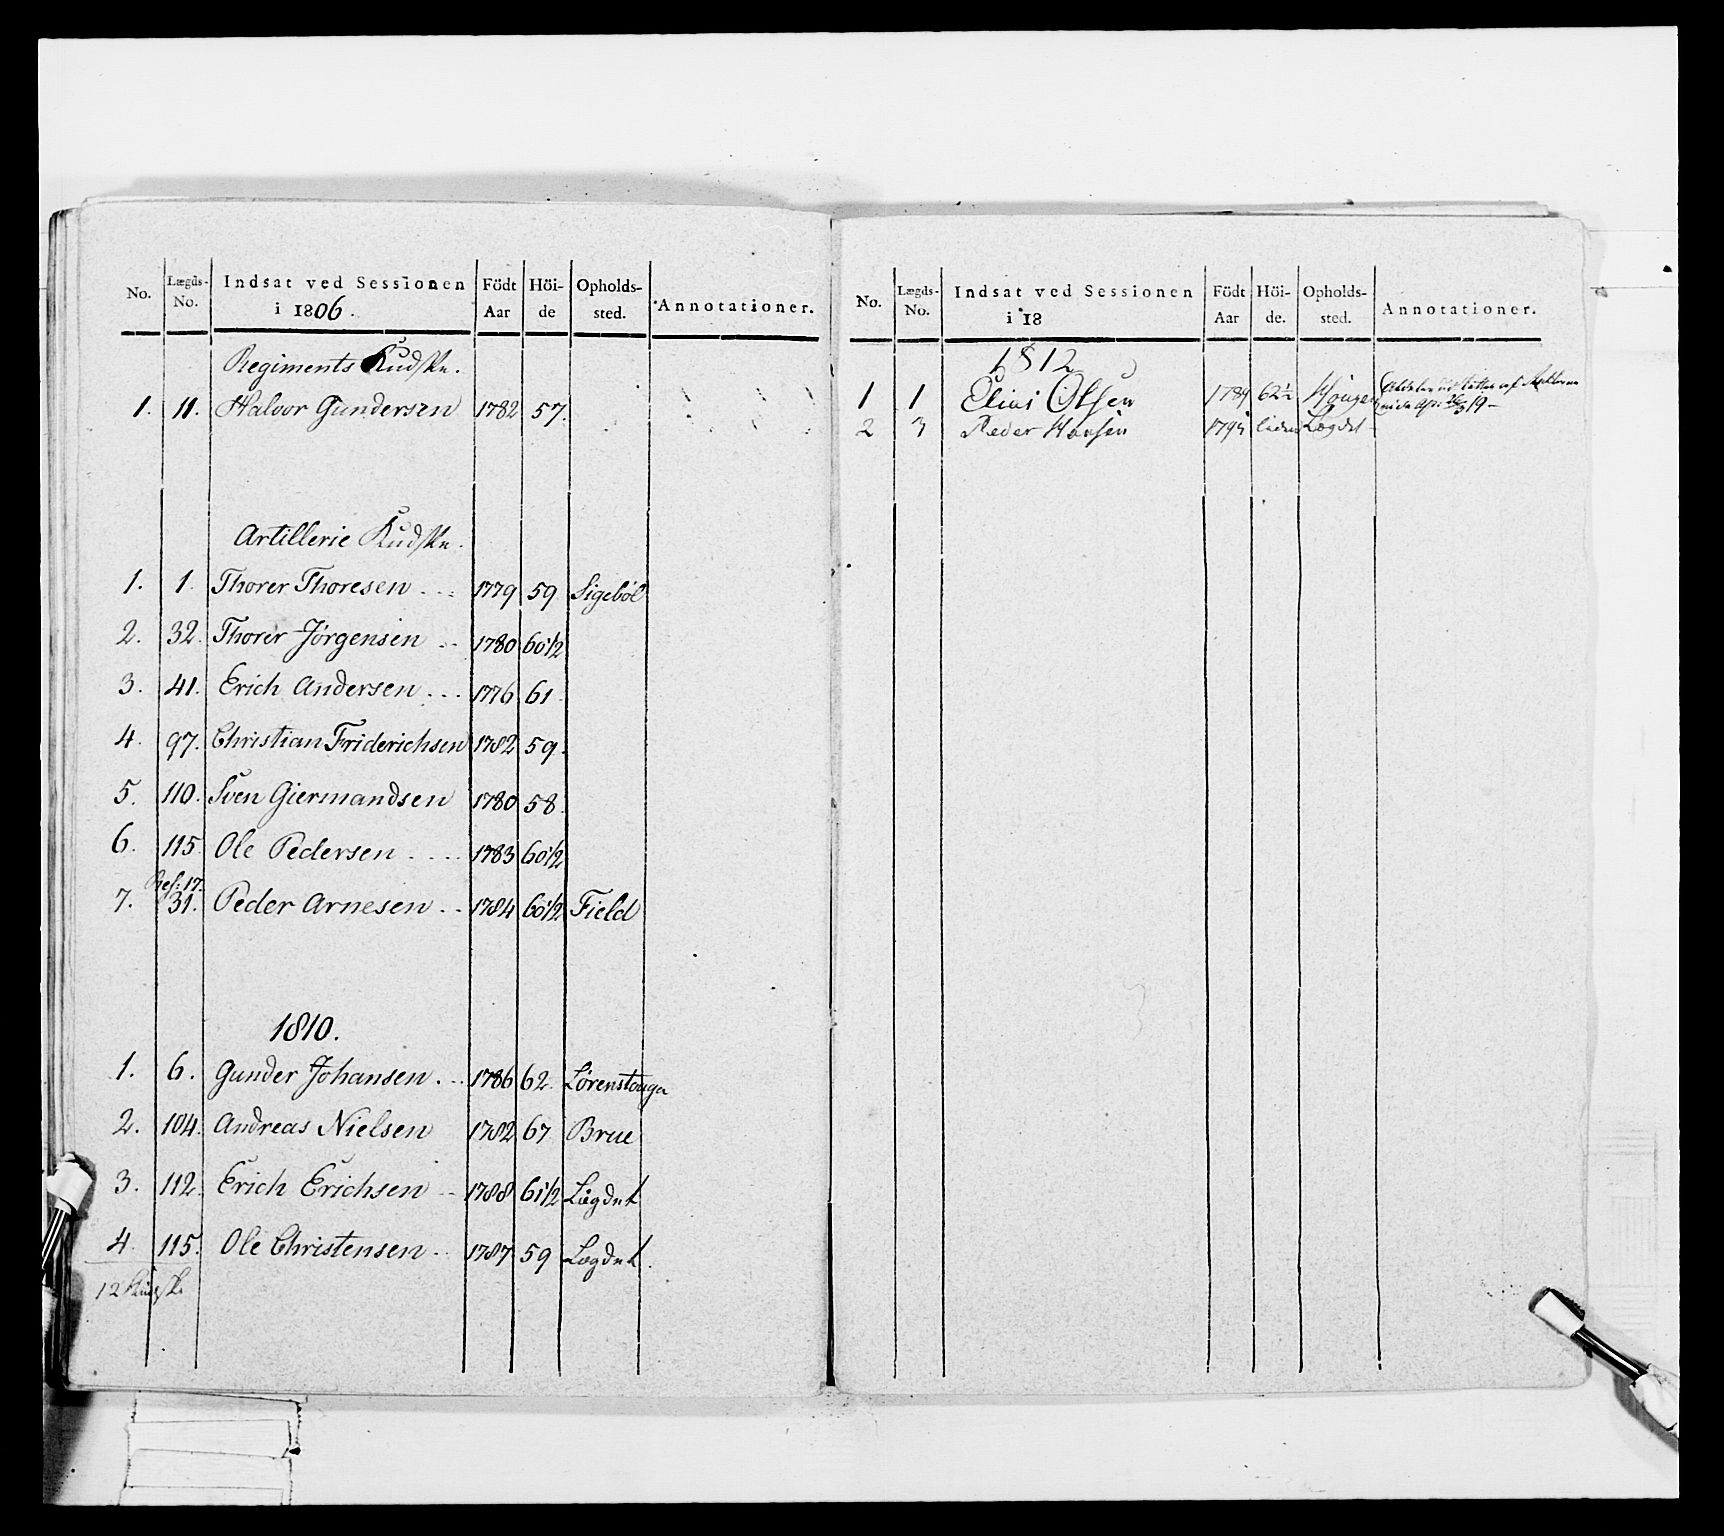 No. Lægds-No. Indsat ved Sessionen i 1806. Födt Aar Höi-de Opholds-sted. Annotationer.
Regiments Kudske.
1. 11. Halvor Gundersen 1782 57.
Artillerie Kudske.
1. 1. Thorer Thoresen 1779 59 Sigeböl
2. 32. Thorer Jörgensen 1780 60 1/2
3. 41. Erich Andersen 1776 61
4. 97. Christian Friderichsen 1782 59.
5. 110. Sven Giermandsen 1780 58.
6. 115. Ole Pedersen 1783 60 1/2
Res: 17.
7. 31. Peder Arnesen 1784 60 1/2 Field
1810.
1. 6. Gunder Johansen 1786 62 Lörenstouga
2. 104. Andreas Nielsen 1782 67 Brue
3. 112. Erich Erichsen 1788 61 1/2 Lægdet
4. 115. Ole Christensen 1787 59 Lægdet.
12 Kudske
No. Lægds-No. Indsat ved Sessionen i 18 Födt Aar Höi-de. Opholds-sted. Annotationer.
1812
1 1 Elias Olsen 1789 62 1/2 19
2 3 Peder Hansen Lægdet